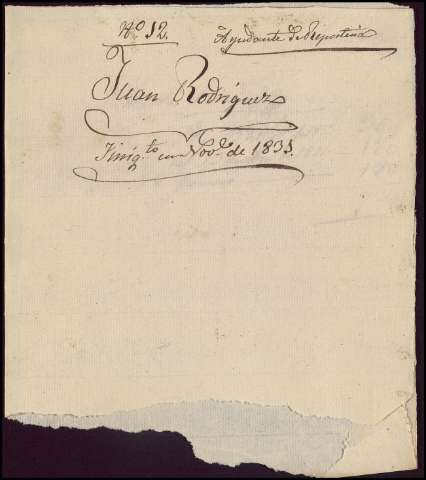 Nº 12.
Ayudante de Reposteria
Juan Rodriguez
Finiq.to en Nov.e de 1831.